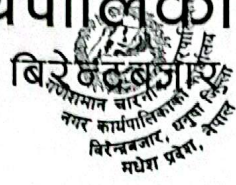 र्यपालिका
बिरेन्द्रबजार
गणेशमान चारनाथ
नगर कार्यपालिकाको कार्यालय
बिरेन्द्रबजार, धनुषा
मधेश प्रदेश, नेपाल